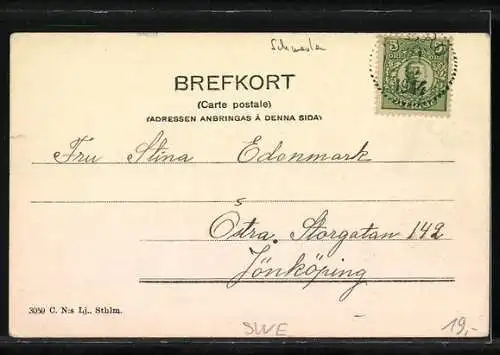 Schweden
BREFKORT
(Carte postale)
(ADRESSEN ANBRINGAS Å DENNA SIDA)
Fru Stina Edonmark
s
Östra Storgatan 142
Jönköping
3050 C. N:s Lj., Sthlm.
SWE
19,-